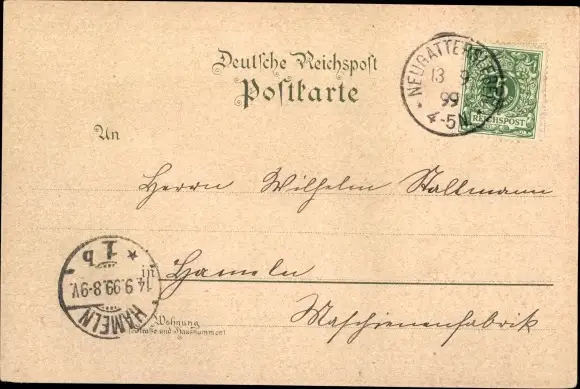 Deutsche Reichspost
Postkarte
NEUGATTERSLEBEN
13 9
99
4-5N.
REICHSPOST
An
Herrn Wilhelm Stallmann
in Hameln
Wohnung
(Straße und Hausnummer)
Maschienenfabrik
HAMELN
14.9.99.8-9V.
* 1 b